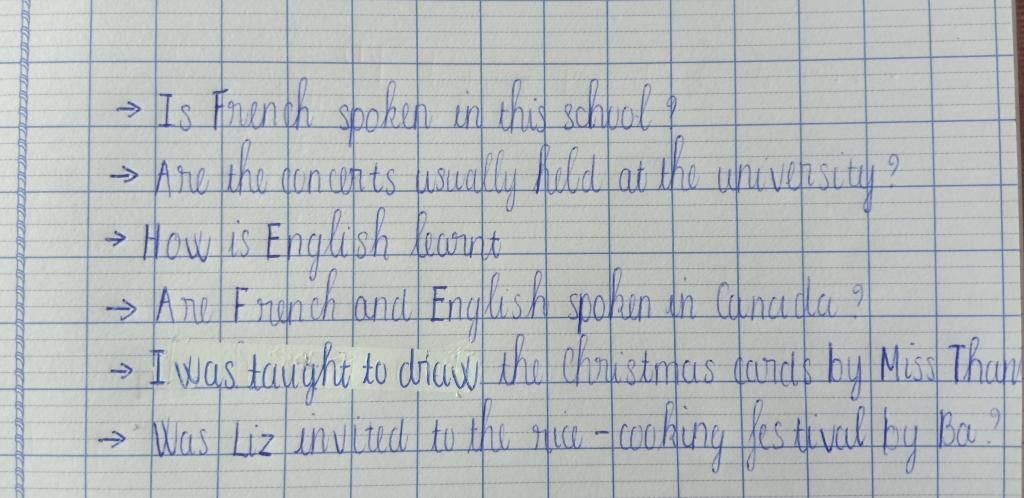 → Is French spoken in this school ?
→ Are the concerts usually held at the university ?
→ How is English learnt
→ Are French and English spoken in Canada ?
→ I was taught to draw the Christmas cards by Miss Than
→ Was Liz invited to the rice - cooking festival by Ba ?